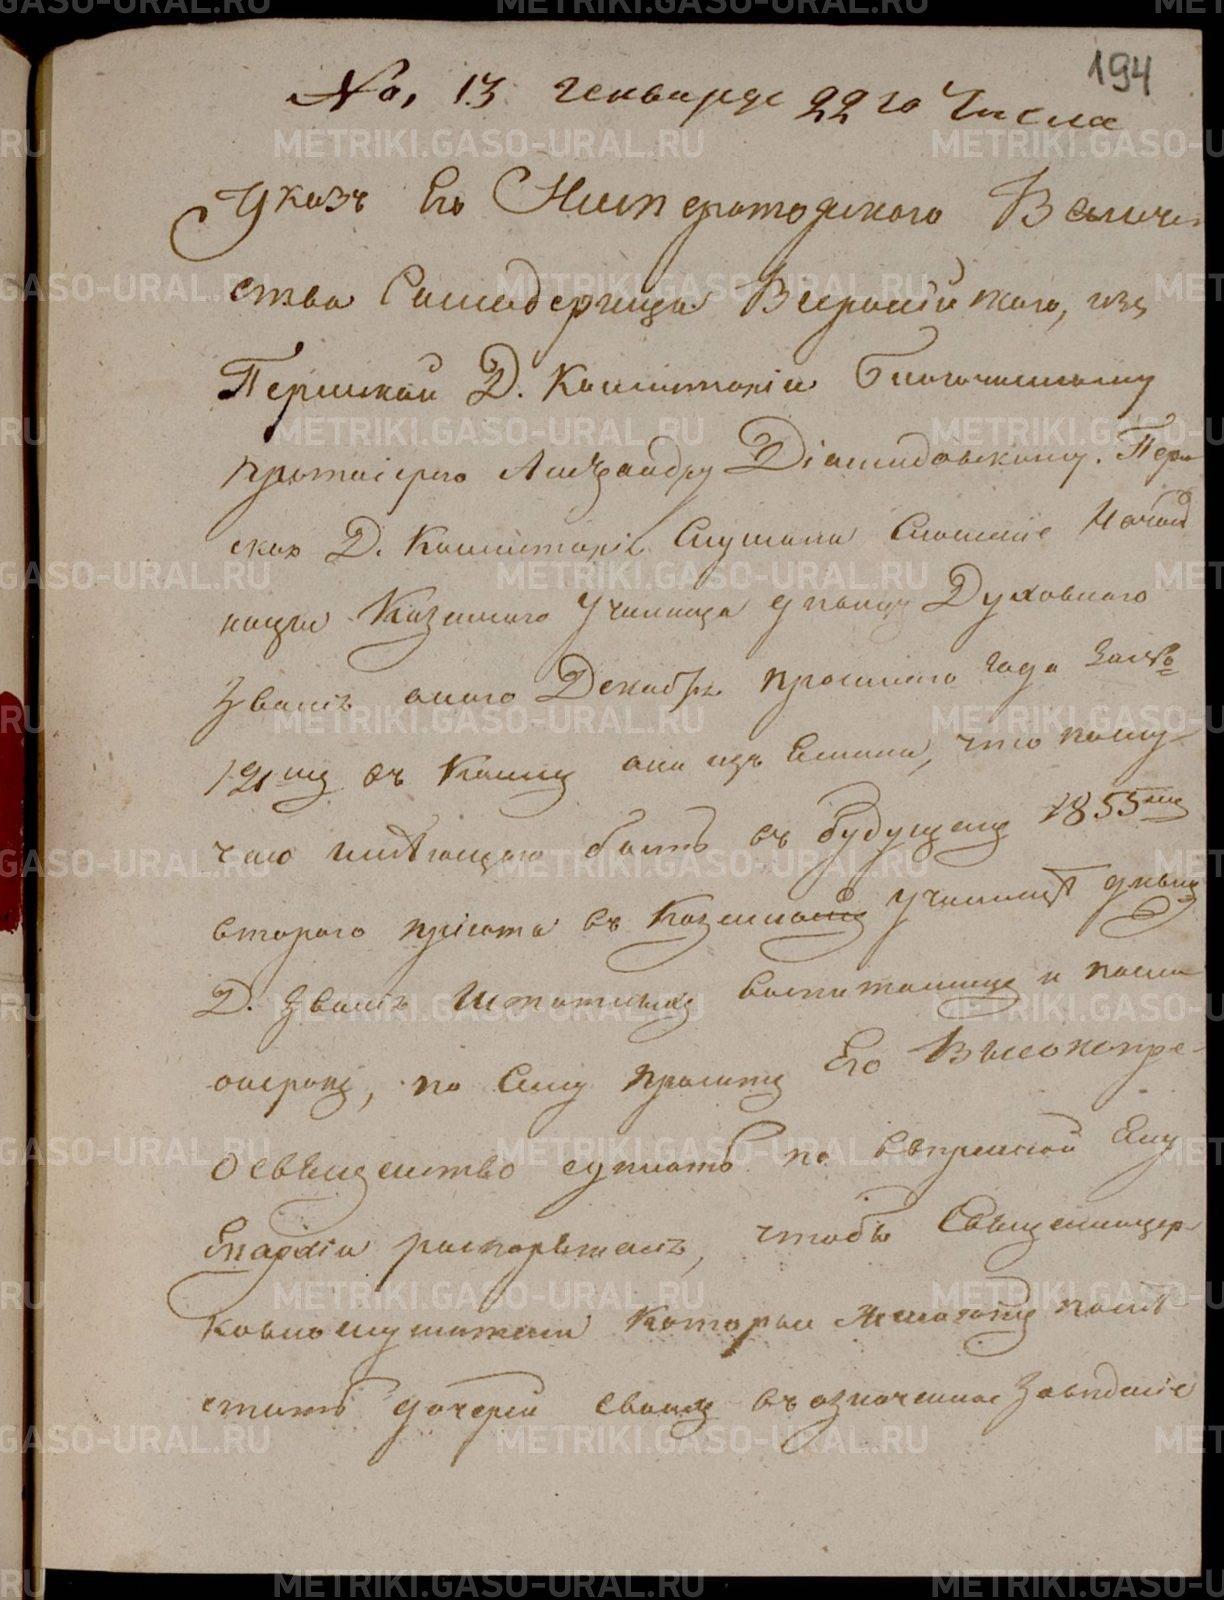 194
No. 13 генваря 22 го Числа
Указъ Его Императорскаго Величе-
ства Самодержца Всероссійскаго, изъ
Пермской Д. Консисторіи Благочинному
Протоіерею Александру Діомидовскому. Перм
ская Д. Консисторія Слушали Сношеніе Началь
ницы Казеннаго Училища дѣвицъ Духовнаго
Званія онаго Декабря прошлаго года За №
121мъ съ коимъ она изъяснила, что по слу-
чаю имѣющаго быть въ будущемъ 1855мъ
втораго пріема въ Казенномъ училищѣ дѣвицъ
Д. Званія Штатныхъ воспитанницъ и панси
онерокъ, по Сему проситъ Его Высокопре-
освященство сдѣлать по ввѣренной Ему
Епархіи распоряженіе, чтобы Священноцер-
ковнослужители которые желаютъ помѣ
стить дочерей своихъ въ означенное Заведеніе
METRIKI.GASO-URAL.RU